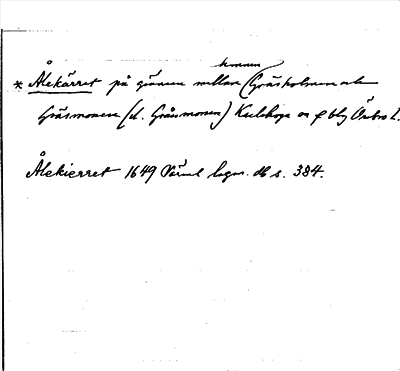 * Ålekärret på gränsen mellan Gräsholmen och
Gräsmonen (el. Gråsmonen) Karlskoga sn o bhg Örebro l.
Ålekierret 1649 Värml lagm. db s. 384.